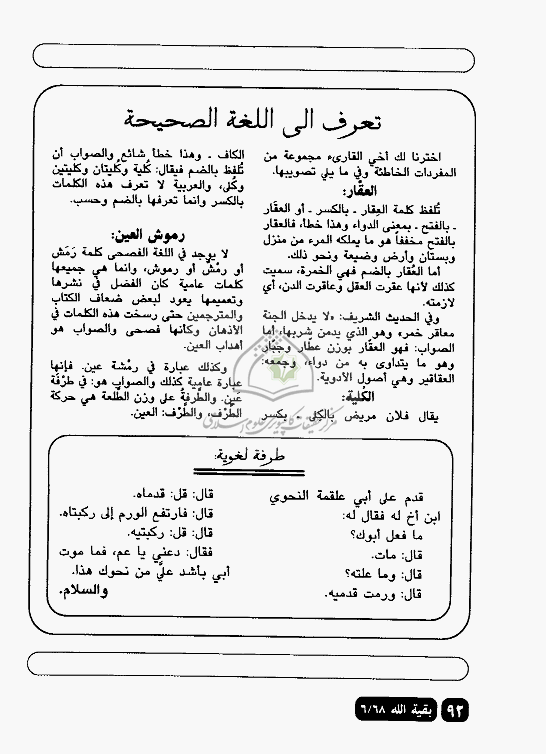 تعرف الى اللغة الصحيحة
اخترنا لك أخي القارىء مجموعة من
المفردات الخاطئة وفي ما يلي تصويبها.
العقّار:
تُلفظ كلمة العِقار ـ بالكسر ـ أو العقّار
ـ بالفتح ـ بمعنى الدواء وهذا خطأ، فالعقار
بالفتح مخففاً هو ما يملكه المرء من منزل
وبستان وأرض وضيعة ونحو ذلك.
أما العُقار بالضم فهي الخمرة، سميت
كذلك لأنها عقرت العقل وعاقرت الدن، أي
لازمته.
وفي الحديث الشريف: «لا يدخل الجنة
معاقر خمر» وهو الذي يدمن شربها، أما
الصواب: فهو العقّار بوزن عطّار وجبّار
وهو ما يتداوى به من دواء، وجمعه:
العقاقير وهي أصول الأدوية.
الكُلية:
يقال فلان مريض بالكِلى ـ بكسر
الكاف ـ وهذا خطأ شائع والصواب أن
تُلفظ بالضم فيقال: كُلية وكُليتان وكُليتين
وكُلى، والعربية لا تعرف هذه الكلمات
بالكسر وانما تعرفها بالضم وحسب.
رموش العين:
لا يوجد في اللغة الفصحى كلمة رَمَش
أو رمْش أو رموش، وانما هي جميعها
كلمات عامية كان الفضل في نشرها
وتعميمها يعود لبعض ضعاف الكتاب
والمترجمين حتى رسخت هذه الكلمات في
الأذهان وكأنها فصحى والصواب هو
أهداب العين.
وكذلك عبارة في رمْشة عين. فإنها
عبارة عامية كذلك والصواب هو: في طرْفَة
عين. والطَّرفةُ على وزن الطلعة هي حركة
الطَّرْف، والطَّرْف: العين.
طرفة لغوية:
قدم على أبي علقمة النحوي
ابن أخ له فقال له:
ما فعل أبوك؟
قال: مات.
قال: وما علته؟
قال: ورمت قدميه.
قال: قل: قدماه.
قال: فارتفع الورم إلى ركبتاه.
قال: قل: ركبتيه.
فقال: دعني يا عم، فما موت
أبي بأشد عليَّ من نحوك هذا.
والسلام.
٩٢ بقية الله ٦/٦٨